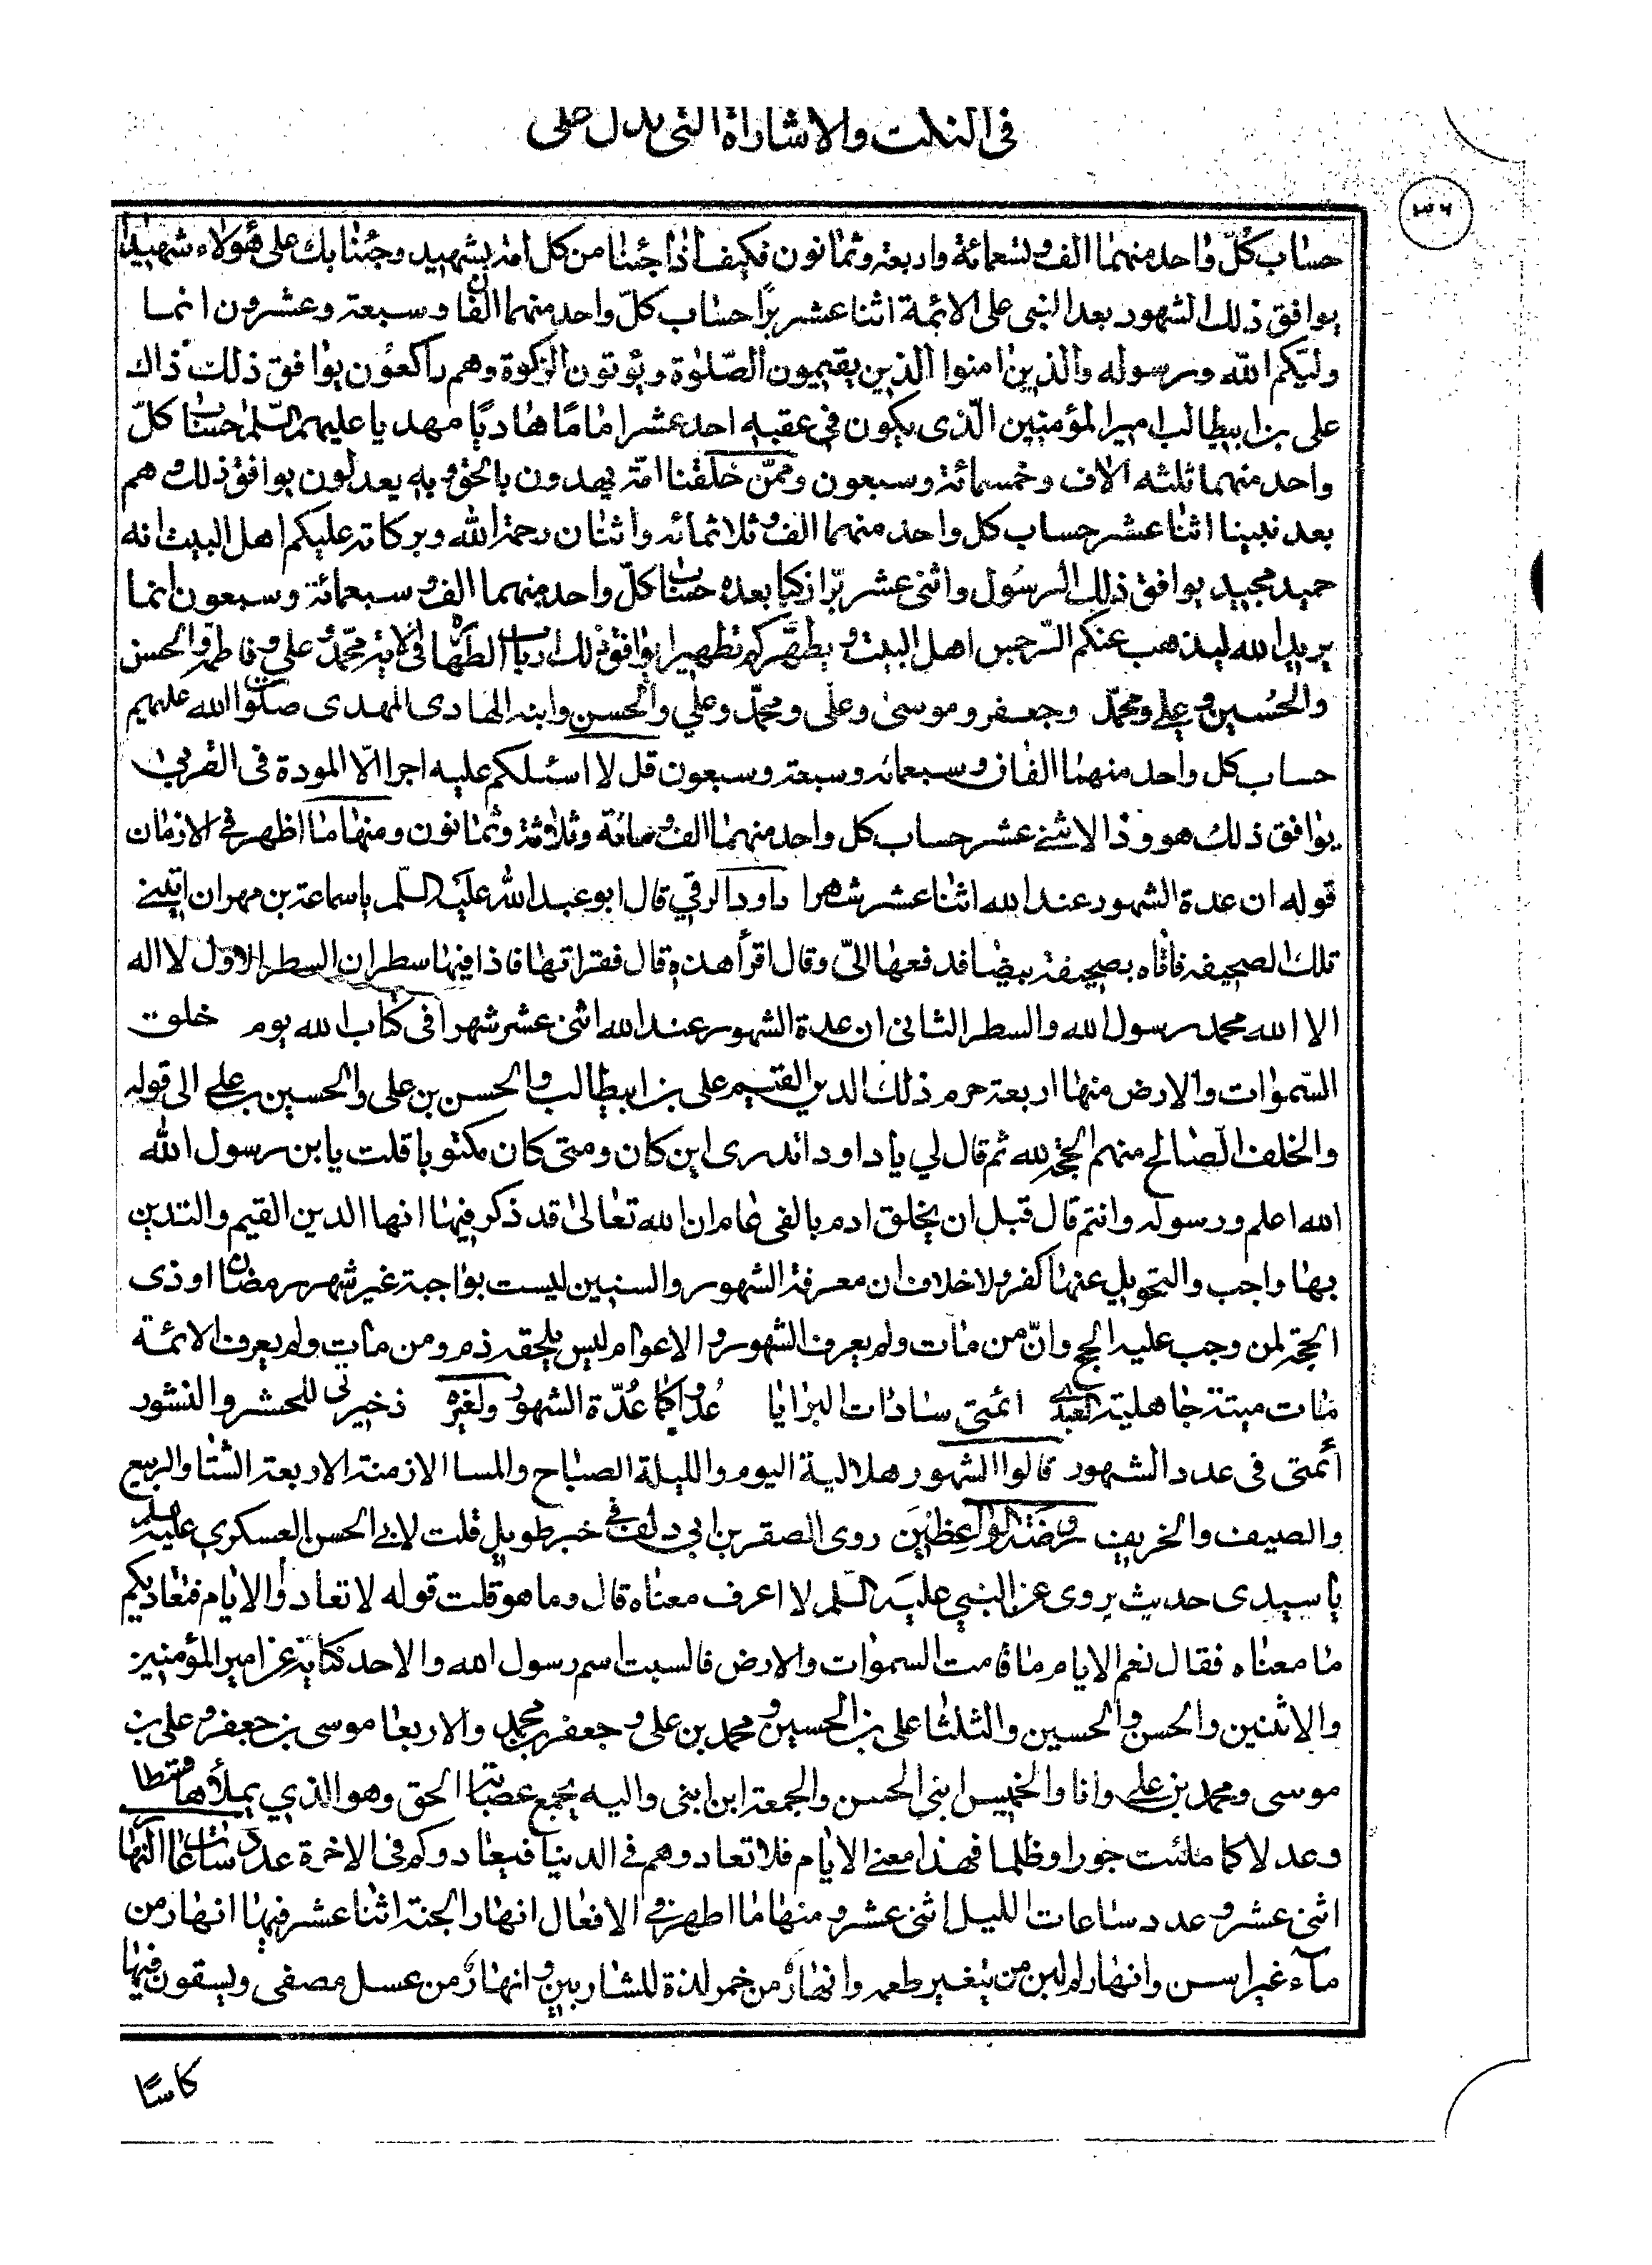 في النكت والاشاراة التي تدل على
٣٦
حساب كلّ واحد منهما الف وتسعمائة واربعة وثمانون فكيف اذا جئنا من كل امة بشهيد وجئنا بك على هؤلاء شهيدا
يوافق ذلك الشهود بعد النبي على الائمة اثنا عشر برًا حساب كلّ واحد منهما الفان وسبعة وعشرون انما
وليّكم الله ورسوله والذين امنوا الذين يقيمون الصّلوٰة ويؤتون الزّكوة وهم راكعون يوافق ذلك ذاك
على بن ابيطالب امير المؤمنين الّذى يكون في عقبه احد عشر امامًا هاديًا مهديا عليهم السّلم حساب كلّ
واحد منهما ثلثه الاف وخمسمائة وسبعون وممّن خلقنا امّة يهدون بالحق وبه يعدلون يوافق ذلك هم
بعد نبينا اثنا عشر حساب كل واحد منهما الف وثلاثمائه واثنان رحمة الله وبركاته عليكم اهل البيت انه
حميد مجيد يوافق ذلك الرسُول واثنى عشر برّا زكيا بعده حساب كلّ واحد منهما الف وسبعمائة وسبعون انما
يريد الله ليذهب عنكم الرّجس اهل البيت ويطهّركم تطهيرا يوافق ذلك ارباب الطهارة في الاية محمّد وعلي وفاطمة والحسن
والحُسين وعلي ومحمّد وجعفر وموسى وعلى ومحمّد وعلي والحسن وابنه الهادى المهدى صلوات الله عليهم
حساب كل واحد منهما الفان وسبعمائه وسبعة وسبعون قل لا اسئلكم عليه اجرا الّا المودة فى القربى
يوافق ذلك هو وذا الاثنى عشر حساب كل واحد منهما الف ومائة وثلاثة وثمانون ومنها ما اظهر في الازمان
قوله ان عدة الشهور عند الله اثنا عشر شهرا داود الرقي قال ابو عبد الله عليه السّلم ياسماعة بن مهران ايتينى
تلك الصحيفه فاتاه بصحيفة بيضا فدفعها اليّ وقال اقرأ هذه قال فقراتها فاذا فيها سطران السطر الاوّل لا اله
الا الله محمد رسول الله والسطر الثانى ان عدة الشهور عند الله اثنى عشر شهرا فى كتاب الله يوم خلق
السّموات والارض منها اربعة حرم ذلك الدين القيم على بن ابيطالب والحسن بن على والحسين بن علي الى قوله
والخلف الصّالح منهم الحجّة لله ثم قال لي يا داود اتدرى اين كان ومتى كان مكتوبا قلت يا بن رسول الله
الله اعلم ورسوله وانتم قال قبل ان يخلق ادم بالفى عام ان الله تعالى قد ذكر فيها انها الدين القيم والتدين
بها واجب والتحويل عنها كفر ولا خلاف ان معرفة الشهور والسنين ليست بواجبة غير شهر رمضان او ذى
الحجّة لمن وجب عليه الحج وانّ من مات ولم يعرف الشهور والاعوام ليس يلحقه ذم ومن مات ولم يعرف الائمة
مات ميتة جاهلية العبدي ائمتى سادات البرايا عُدوا كما عُدّة الشهور ولغيره ذخيرتى للحشر والنشور
أئمتى فى عدد الشهور قالوا الشهور هلالية اليوم والليلة الصباح والمسا الازمنة الاربعة الشتا والربيع
والصيف والخريف روضة الواعظين روى الصقر بن ابى دلف في خبر طويل قلت لابى الحسن العسكري عليه السلم
يا سيدى حديث يروى عن النبي عليه السّلم لا اعرف معناه قال وما هو قلت قوله لا تعادوا الايام فتعاديكم
ما معناه فقال نعم الايام ما قامت السموات والارض فالسبت اسم رسول الله والاحد كناية عن امير المؤمنين
والاثنين والحسن والحسين والثلثا على بن الحسين ومحمد بن على وجعفر بن محمد والاربعا موسى بن جعفر وعلى بن
موسى ومحمد بن علي وانا والخميس ابنى الحسن والجمعة ابن ابنى واليه يجمع عصابة الحق وهو الذي يملأها قسطا
وعدلا كما ملئت جورا وظلما فهذا معنى الايام فلا تعادوهم في الدينا فيعادوكم فى الاخرة عدد ساعات النهار
اثنى عشر وعدد ساعات الليل اثنى عشر ومنها ما اظهر في الافعال انهار الجنة اثنا عشر فيها انهار من
مآء غير اسن وانهار من لبن لم يتغير طعمه وانهارٌ من خمر لذة للشاربين وانهارٌ من عسل مصفى ويسقون فيها
كاسًا